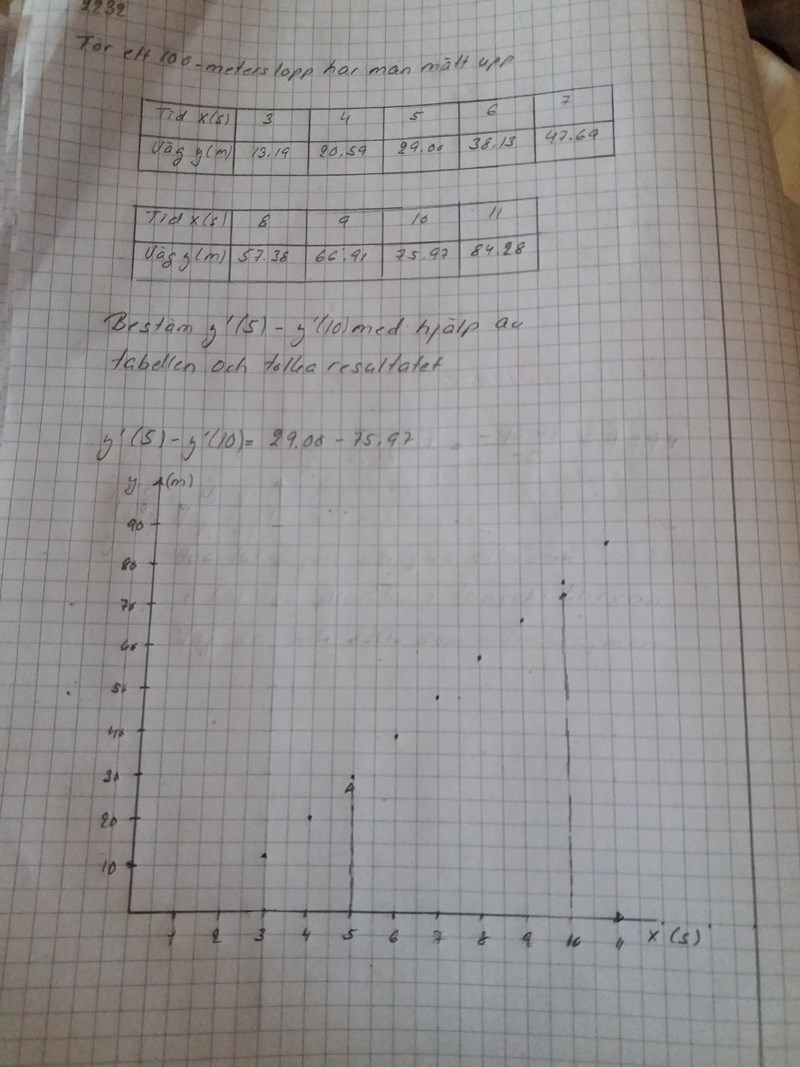 2232
För ett 100-meterslopp har man mätt upp
Tid x(s) 3 4 5 6 7
Väg y(m) 13.19 20.59 29.08 38.13 47.69
Tid x(s) 8 9 10 11
Väg y(m) 57.38 66.91 75.97 84.28
Bestäm y'(5) - y'(10) med hjälp av
tabellen och tolka resultatet
y'(5) - y'(10) = 29.08 - 75.97
y (m)
90
80
70
60
50
40
30
20
10
1 2 3 4 5 6 7 8 9 10 11 x (s)